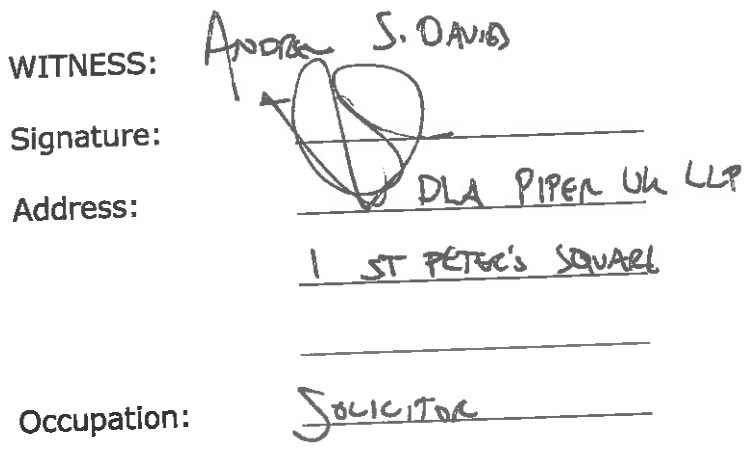 WITNESS: ANDREW S. DAVIES
Signature:
Address: DLA PIPER UK LLP
1 ST PETER'S SQUARE
Occupation: SOLICITOR